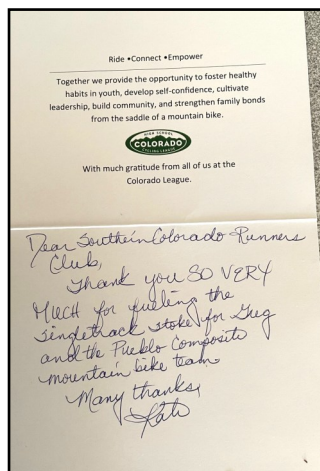 Ride •Connect •Empower
Together we provide the opportunity to foster healthy
habits in youth, develop self-confidence, cultivate
leadership, build community, and strengthen family bonds
from the saddle of a mountain bike.
HIGH SCHOOL
COLORADO
CYCLING LEAGUE
With much gratitude from all of us at the
Colorado League.
Dear Southern Colorado Runners
Club,
Thank you SO VERY
MUCH for fueling the
singletrack stoke for Greg
and the Pueblo Composite
mountain bike team.
Many thanks,
Kate